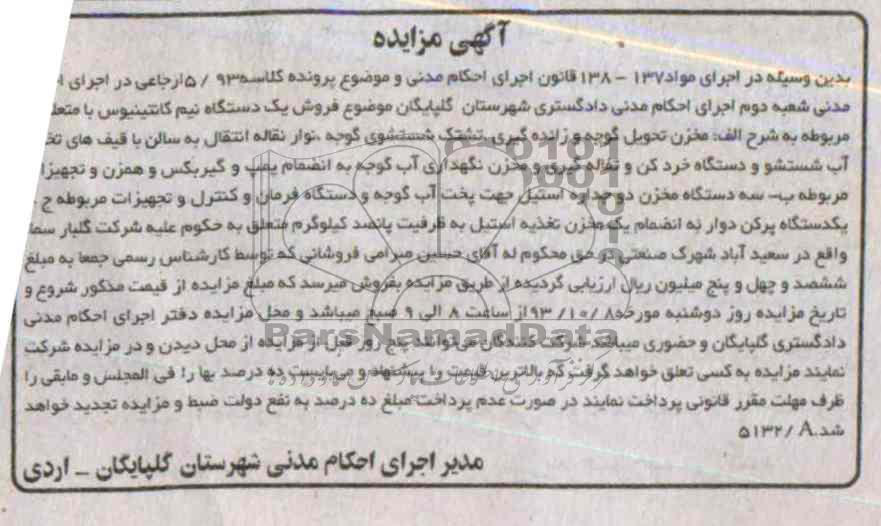 آگهی مزایده
بدین وسیله در اجرای مواد ۱۳۷ – ۱۳۸ قانون اجرای احکام مدنی و موضوع پرونده کلاسه ۹۳ / ۵ ارجاعی در اجرای
مدنی شعبه دوم اجرای احکام مدنی دادگستری شهرستان گلپایگان موضوع فروش یک دستگاه نیم کانتینیوس با
مربوطه به شرح الف: مخزن تحویل گوجه و زانده گیری ,تشتک شستشوی گوجه ,نوار نقاله انتقال به سالن با قیف های
آب شستشو و دستگاه خرد کن و تفاله گیری و مخزن نگهداری آب گوجه به انضمام پمپ و گیربکس و همزن و
مربوطه ب– سه دستگاه مخزن دو جداره استیل جهت پخت آب گوجه و دستگاه فرمان و کنترل و تجهیزات مربوطه ج
یکدستگاه پرکن دوار به انضمام یک مخزن تغذیه استیل به ظرفیت پانصد کیلوگرم متعلق به حکوم علیه شرکت گلبار
واقع در سعید آباد شهرک صنعتی در حق محکوم له آقای حسین میرامی فروشانی که توسط کارشناس رسمی جمعا به مبلغ
ششصد و چهل و پنج میلیون ریال ارزیابی گردیده از طریق مزایده بفروش میرسد که مبلغ مزایده از قیمت مذکور شروع و
تاریخ مزایده روز دوشنبه مورخه ۸ /۱۰/ ۹۳ از ساعت ۸ الی ۹ صبح میباشد و محل مزایده دفتر اجرای احکام مدنی
دادگستری گلپایگان و حضوری میباشد شرکت کنندگان می‌توانند پنج روز قبل از مزایده از محل دیدن و در مزایده شرکت
نمایند مزایده به کسی تعلق خواهد گرفت که بالاترین قیمت را پیشنهاد و می‌بایست ده درصد بها را فی المجلس و مابقی را
ظرف مهلت مقرر قانونی پرداخت نمایند در صورت عدم پرداخت مبلغ ده درصد به نفع دولت ضبط و مزایده تجدید خواهد
شد.۵۱۳۲/ A
مدیر اجرای احکام مدنی شهرستان گلپایگان _ اردی
ParsNamadData